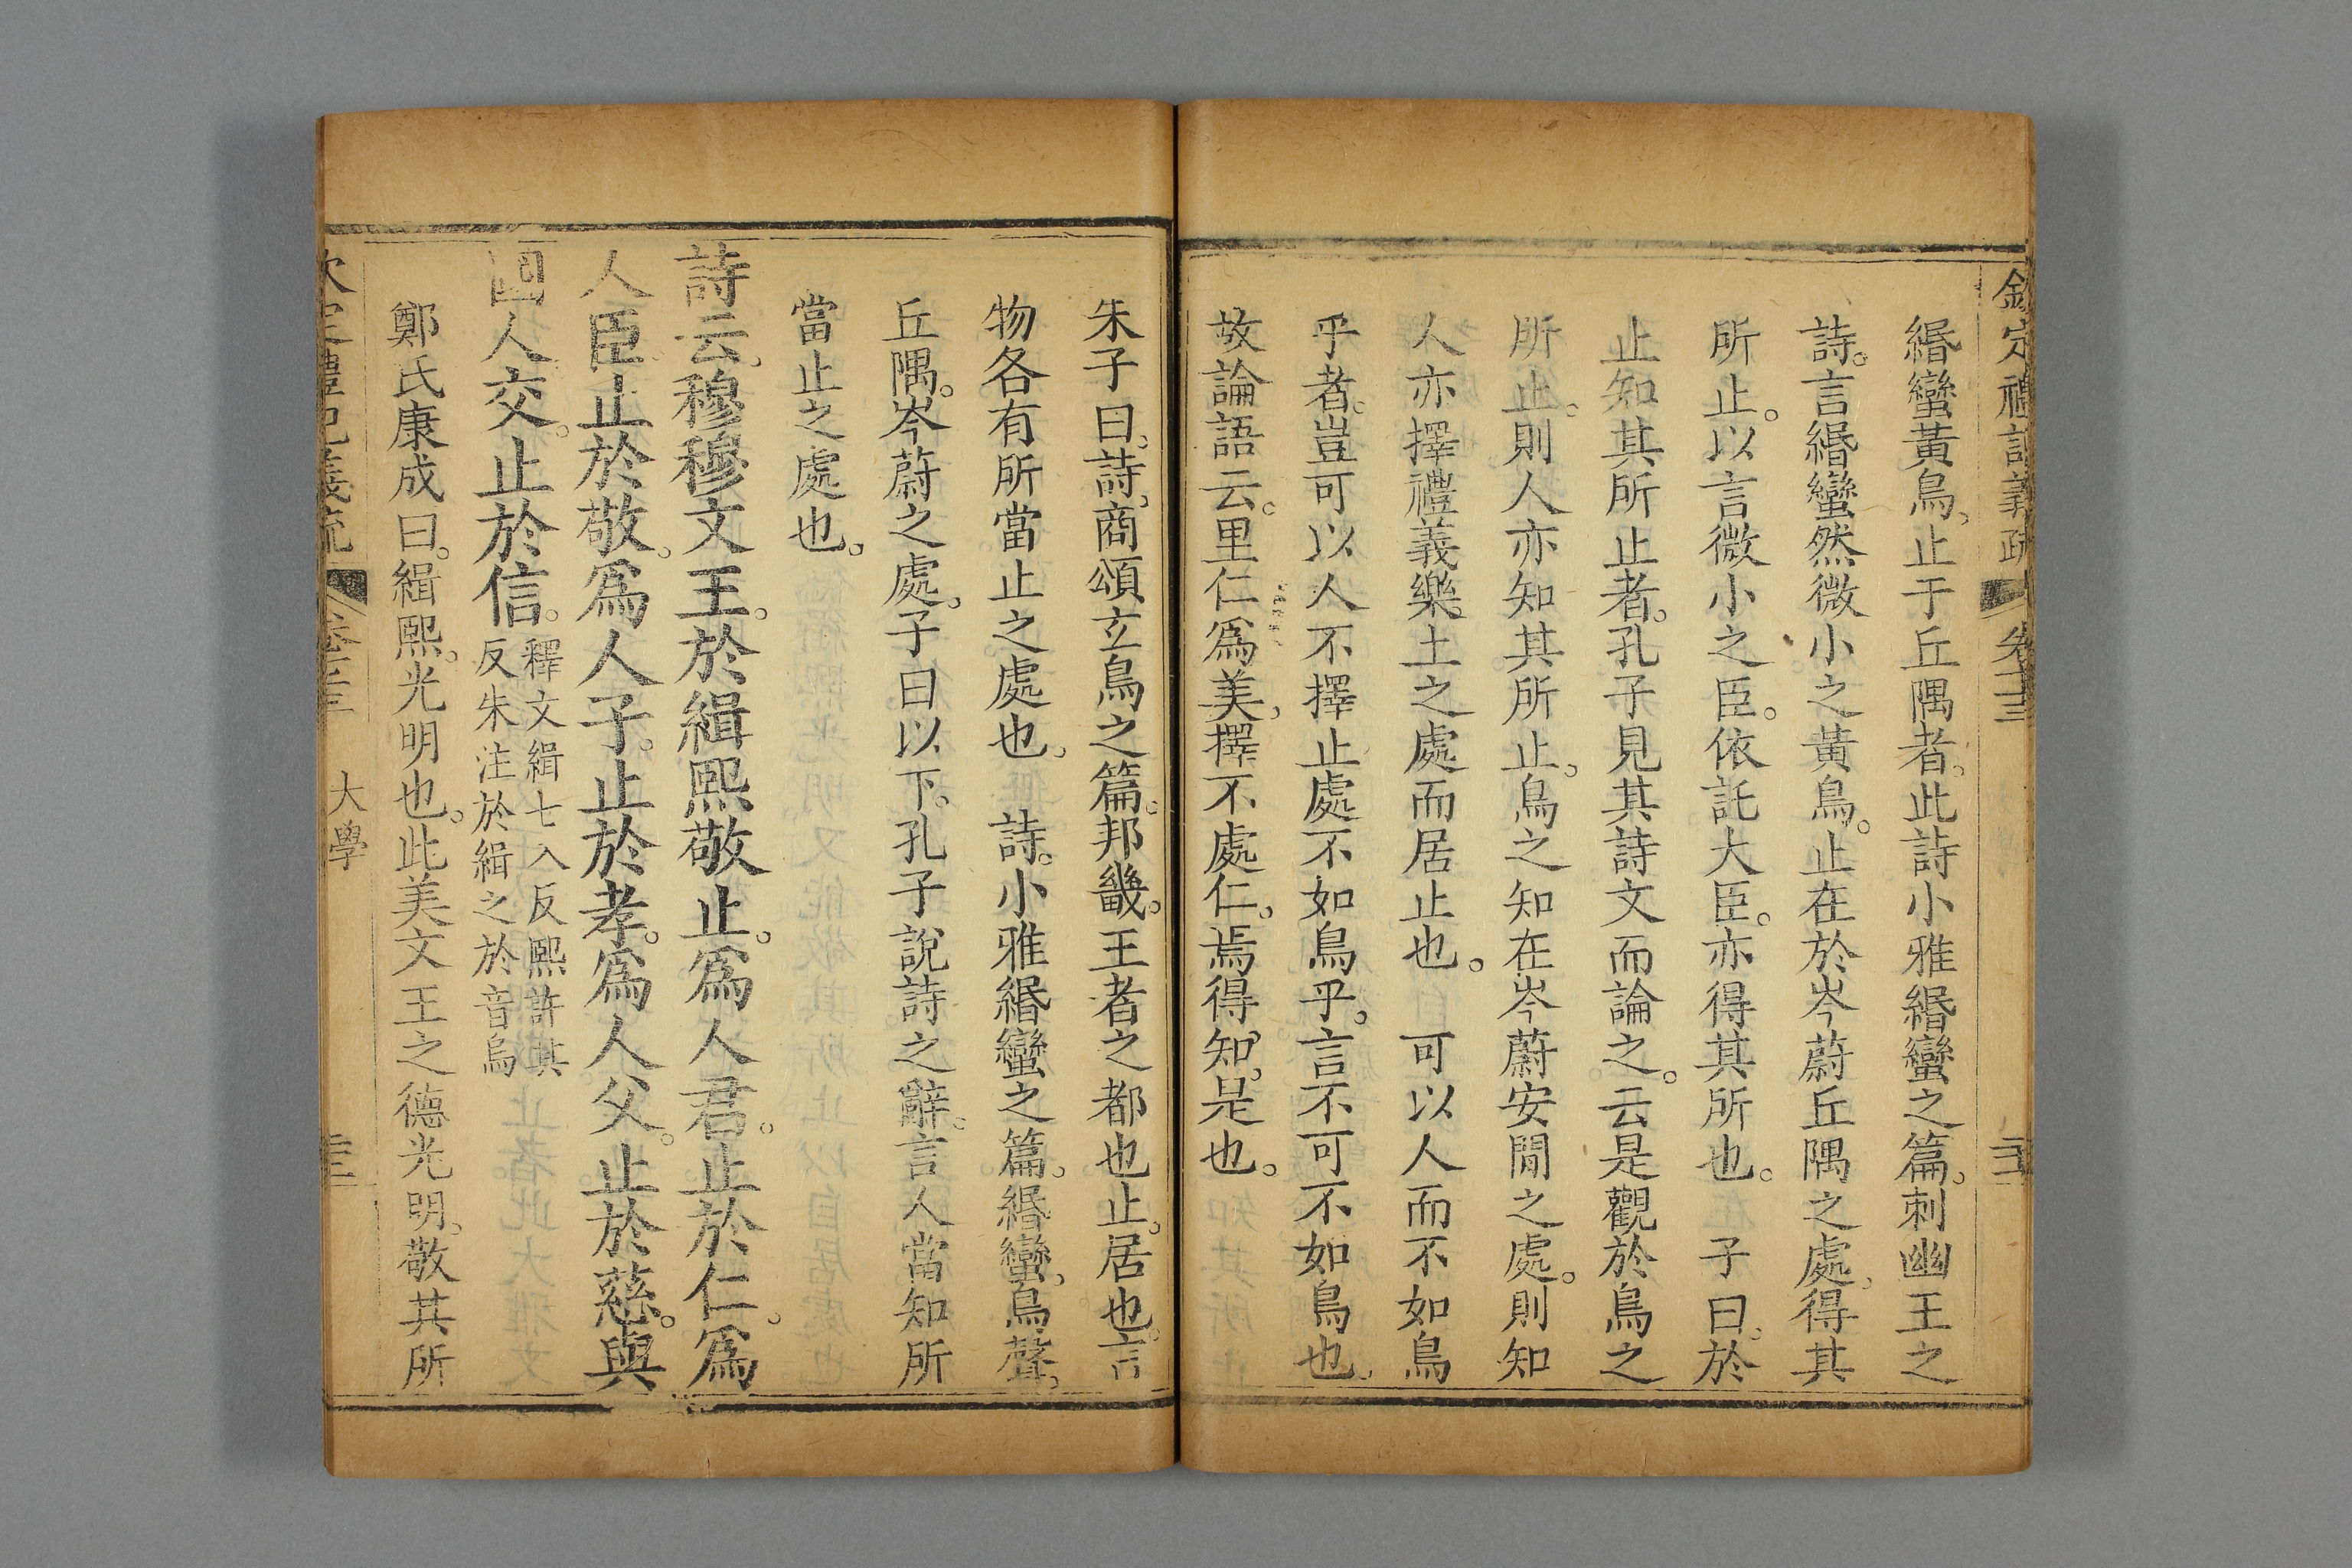 欽定禮記義疏 卷七十三 三十二
緡蠻黃鳥、止于丘隅者。此詩小雅緡蠻之篇、刺幽王之
詩。言緡蠻然微小之黃鳥。止在於岑蔚丘隅之處、得其
所止。以言微小之臣。依託大臣。亦得其所也。 子曰。於
止知其所止者。孔子見其詩文而論之。云是觀於鳥之
所止。則人亦知其所止。鳥之知在岑蔚安閒之處。則知
人亦擇禮義樂土之處而居止也。 可以人而不如鳥
乎者。豈可以人不擇止處不如鳥乎。言不可不如鳥也、
故論語云。里仁爲美、擇不處仁。焉得知。是也。
朱子曰。詩、商頌玄鳥之篇。邦畿。王者之都也止。居也。言
物各有所當止之處也、 詩。小雅緡蠻之篇、緡蠻、鳥聲、
丘隅。岑蔚之處。子曰以下。孔子說詩之辭。言人當知所
當止之處也。
詩云、穆穆文王。於緝熙敬止。爲人君。止於仁。爲
人臣止於敬。爲人子。止於孝。爲人父。止於慈。與
國人交。止於信。
釋文緝七入反熙許其
反朱注於緝之於音烏
鄭氏康成曰。緝熙。光明也。此美文王之德光明。敬其所
欽定禮記義疏 大學